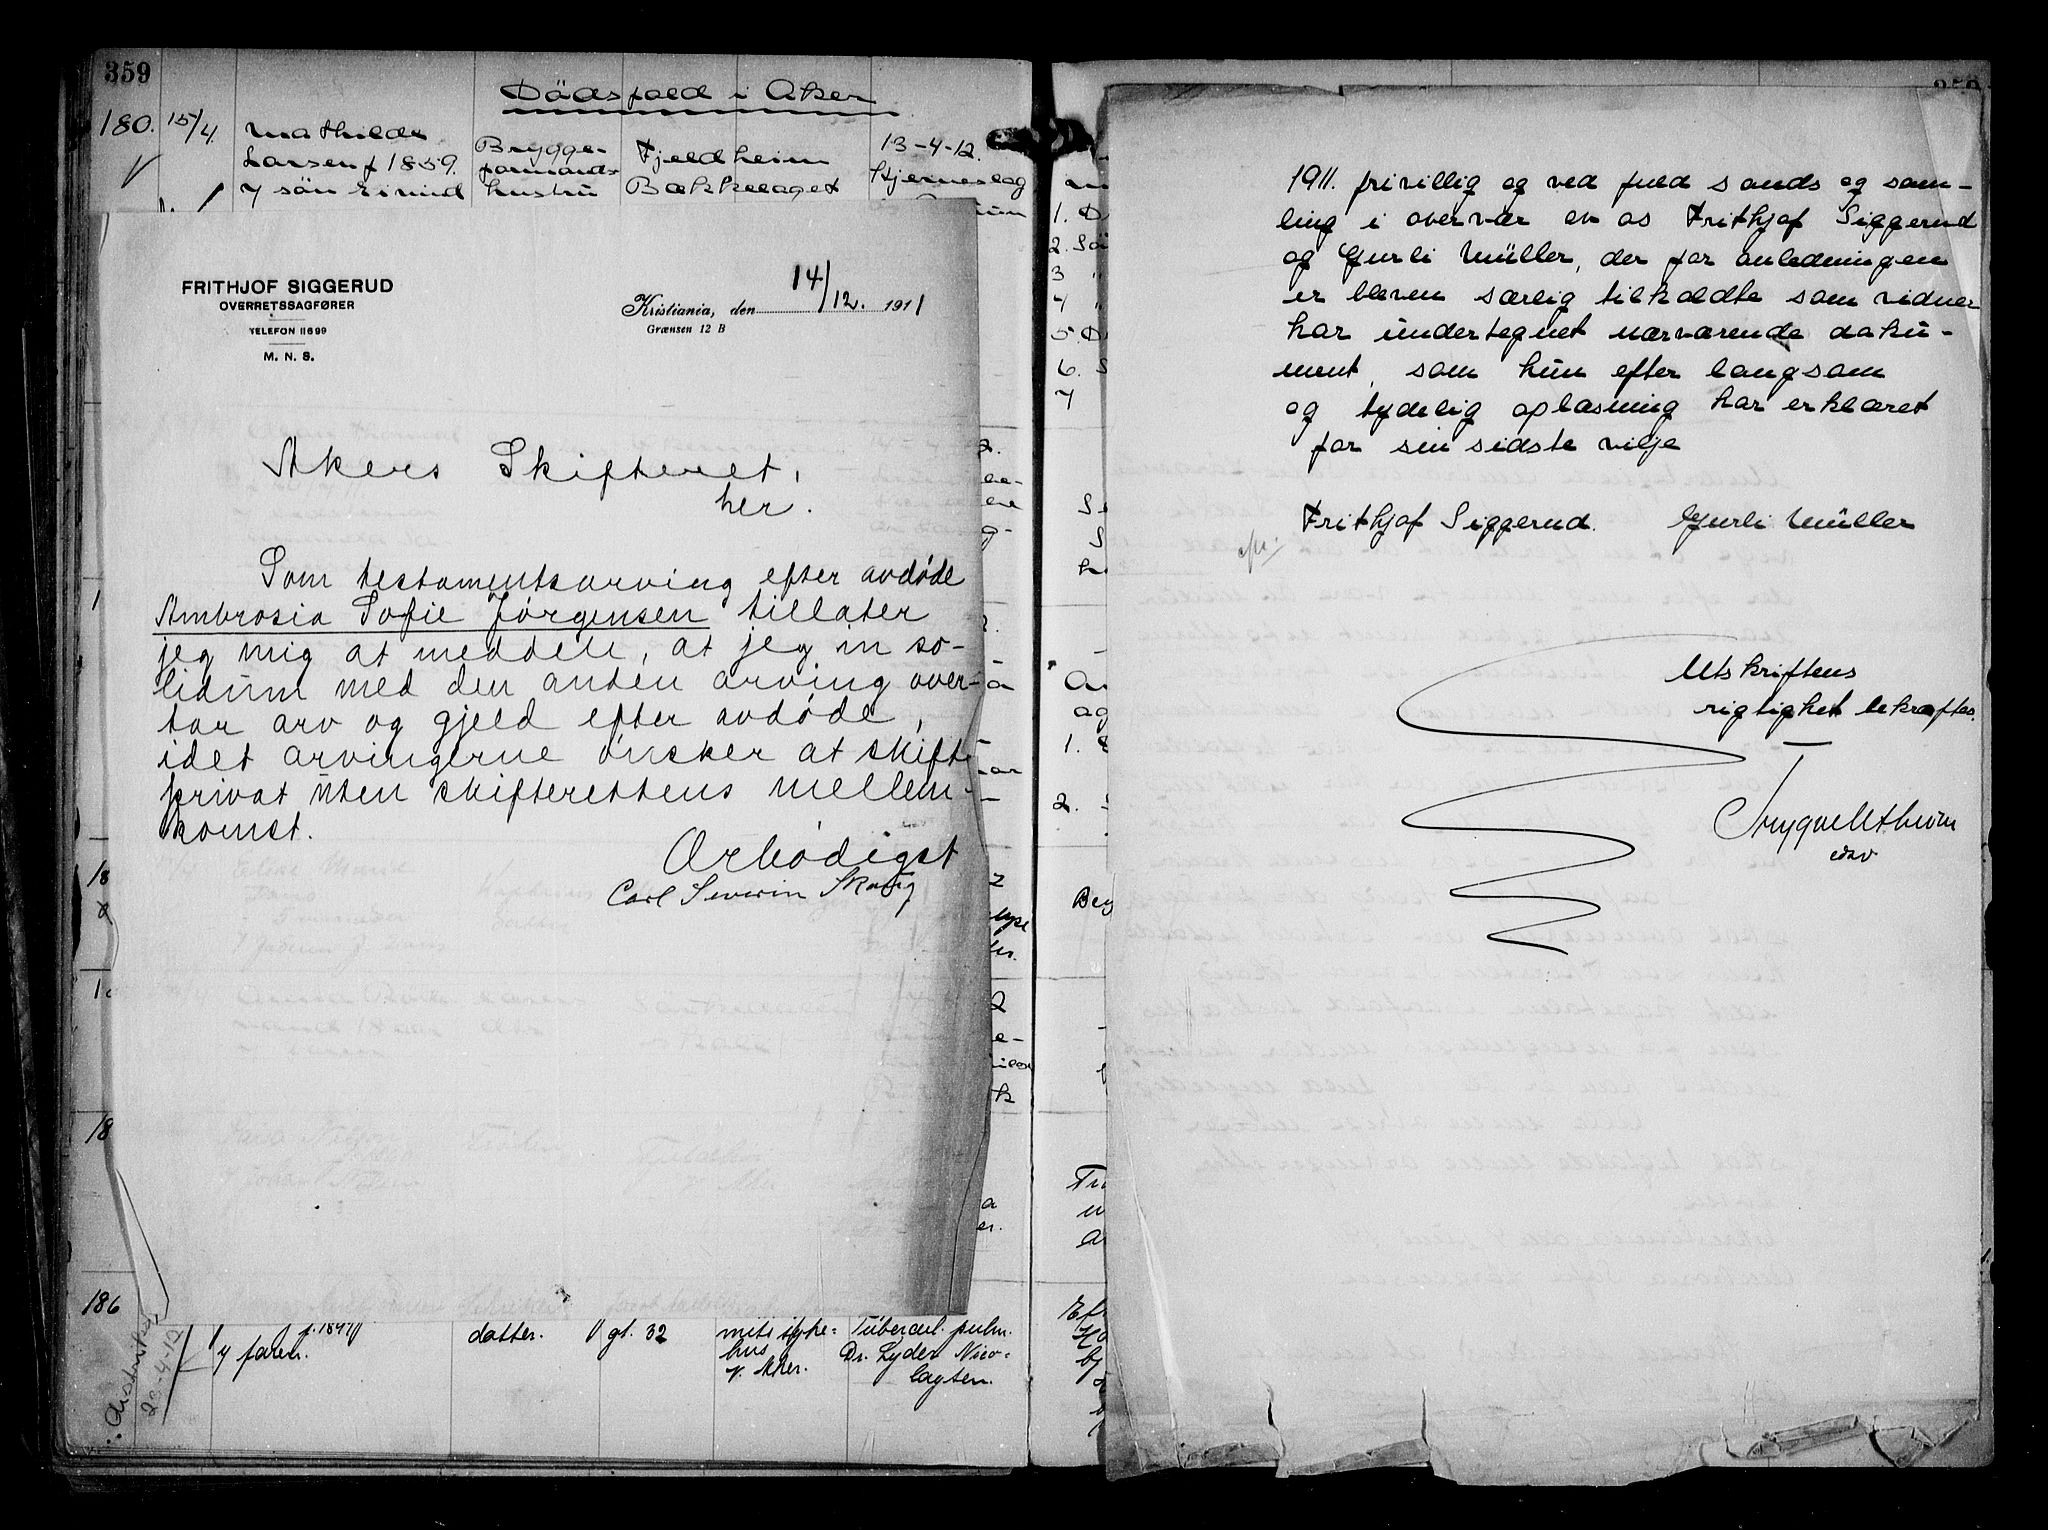 359
Dödsfald i Aker
180. 15/4. Mathilde
Larsen f 1859.
7 sön Eivind
Brygge-
formands
hustru
Fjeldheim
Bækkelaget
13-4-12.
Hjerneslag
FRITHJOF SIGGERUD
OVERRETSSAGFØRER
TELEFON 11699
M. N. S.
Kristiania, den 14/12. 1911
Grænsen 12 B
Akers Skifteret,
her.
Som testamentsarving efter avdøde
Ambrosia Sofie Jørgensen tillater
jeg mig at meddele, at jeg in so-
lidum med den anden arving over-
tar arv og gjeld efter avdøde,
idet arvingerne ønsker at skifte
privat uten skifterettens mellem-
komst.
Ærbødigst
Carl Severin Skoug
186
f. 1894
7 faren.
datter.
gt. 32
mets syke=
hus
V. Aker.
Tübercul. pulm.
Dr. Lyder Nico=
laysen.
20-4-12
1911. frivillig og ved fuld sands og sam-
ling i overvær av os Frithjof Siggerud
og Gurli Müller, der for anledningen
er bleven særlig tilkaldte som vidner
har undertegnet nærværende doku-
ment, som hun efter langsom
og tydelig oplæsning har erklæret
for sin sidste vilje
Frithjof Siggerud. Gurli Müller
Utskriftens
rigtighet bekræftes.